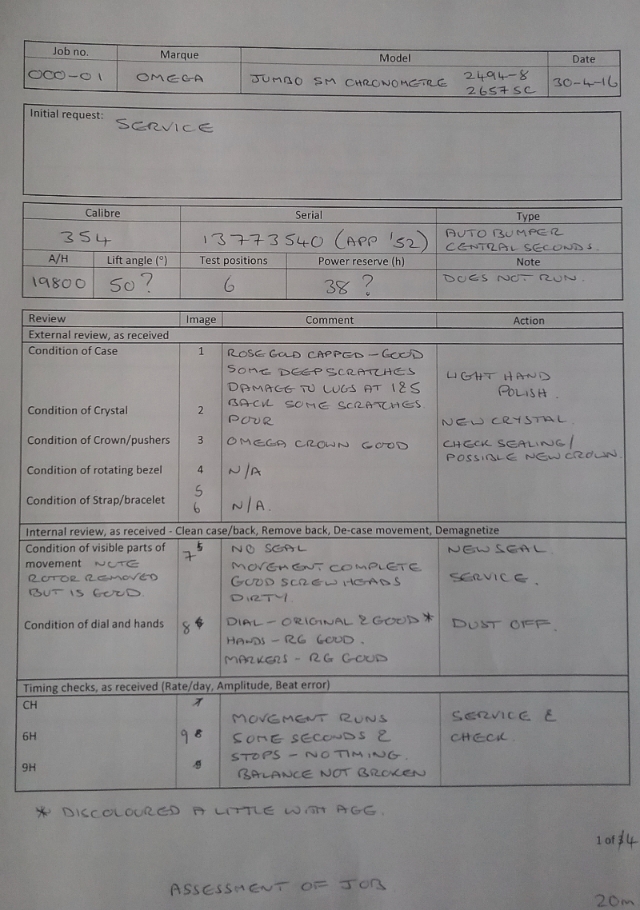 Job no. Marque Model Date
000-01 OMEGA JUMBO SM CHRONOMETRE 2494-8 30-4-16
2657SC
Initial request: SERVICE
Calibre Serial Type
354 13773540 (APP '52) AUTO BUMPER
CENTRAL SECONDS.
A/H Lift angle (°) Test positions Power reserve (h) Note
19800 50? 6 38? DOES NOT RUN.
Review Image Comment Action
External review, as received
Condition of Case 1 ROSE GOLD CAPPED - GOOD
SOME DEEP SCRATCHES LIGHT HAND
DAMAGE TO LUGS AT 1&5 POLISH.
BACK SOME SCRATCHES
Condition of Crystal 2 POOR NEW CRYSTAL.
Condition of Crown/pushers 3 OMEGA CROWN GOOD CHECK SEALING/
POSSIBLE NEW CROWN.
Condition of rotating bezel 4 N/A
5
Condition of Strap/bracelet 6 N/A.
Internal review, as received - Clean case/back, Remove back, De-case movement, Demagnetize
Condition of visible parts of 7 NO SEAL NEW SEAL.
movement NOTE MOVEMENT COMPLETE
ROTOR REMOVED GOOD SCREW HEADS SERVICE.
BUT IS GOOD. DIRTY.
Condition of dial and hands 8 DIAL - ORIGINAL & GOOD * DUST OFF.
HANDS - RG GOOD.
MARKERS - RG GOOD
Timing checks, as received (Rate/day, Amplitude, Beat error)
CH 7
MOVEMENT RUNS SERVICE &
6H 9 8 SOME SECONDS & CHECK.
STOPS - NO TIMING.
9H BALANCE NOT BROKEN
* DISCOLOURED A LITTLE WITH AGE.
1 of 14
ASSESSMENT OF JOB
20m